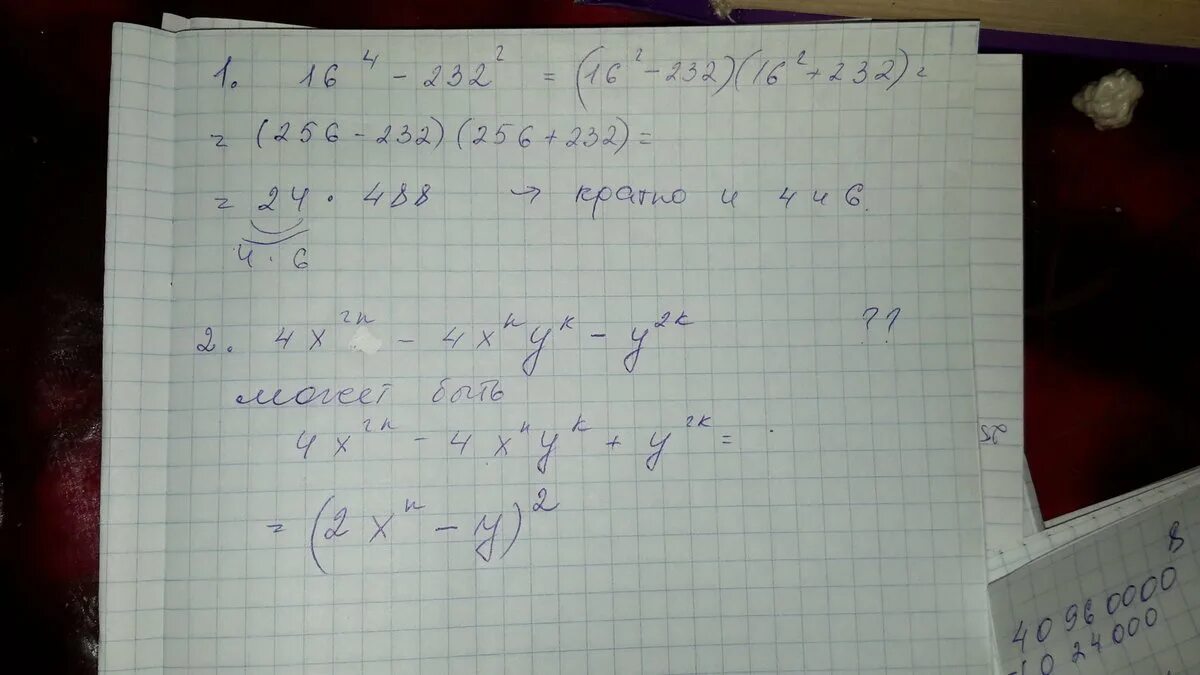 1. 16⁴ - 232² = (16² - 232)(16² + 232) =
= (256 - 232)(256 + 232) =
= 24 · 488 → кратно и 4 и 6.
4 · 6
2. 4x²ⁿ - 4xⁿyᵏ - y²ᵏ ??
может быть
4x²ⁿ - 4xⁿyᵏ + y²ᵏ =
= (2xⁿ - y)²
25
8
40960000
024000